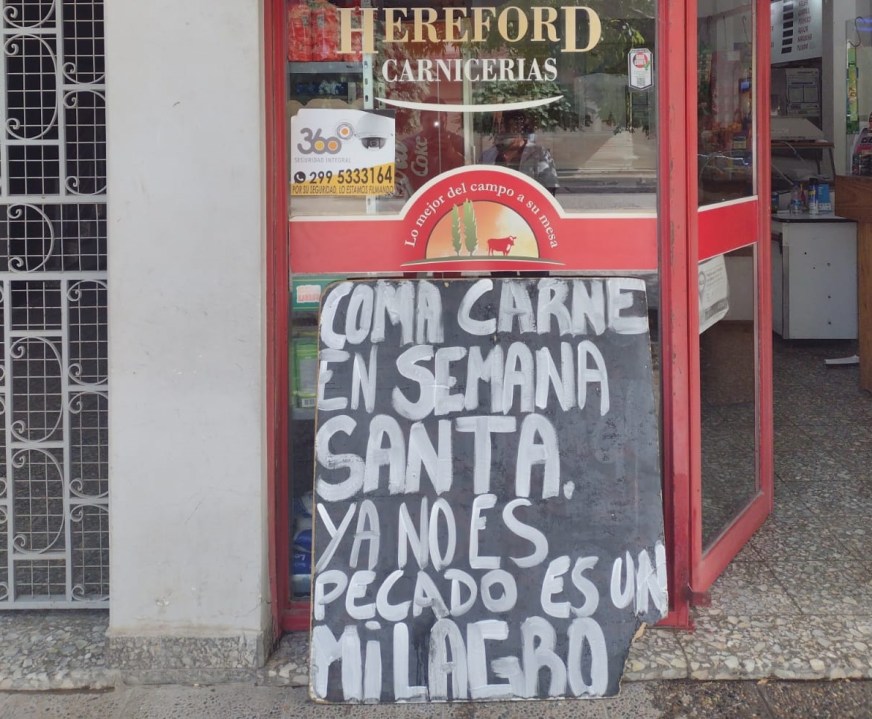 HEREFORD
CARNICERIAS
360
SEGURIDAD INTEGRAL
299 5333164
POR SU SEGURIDAD, LO ESTAMOS FILMANDO
Coke
Lo mejor del campo a su mesa
COMA CARNE
EN SEMANA
SANTA.
YA NO ES
PECADO ES UN
MiLAGRO